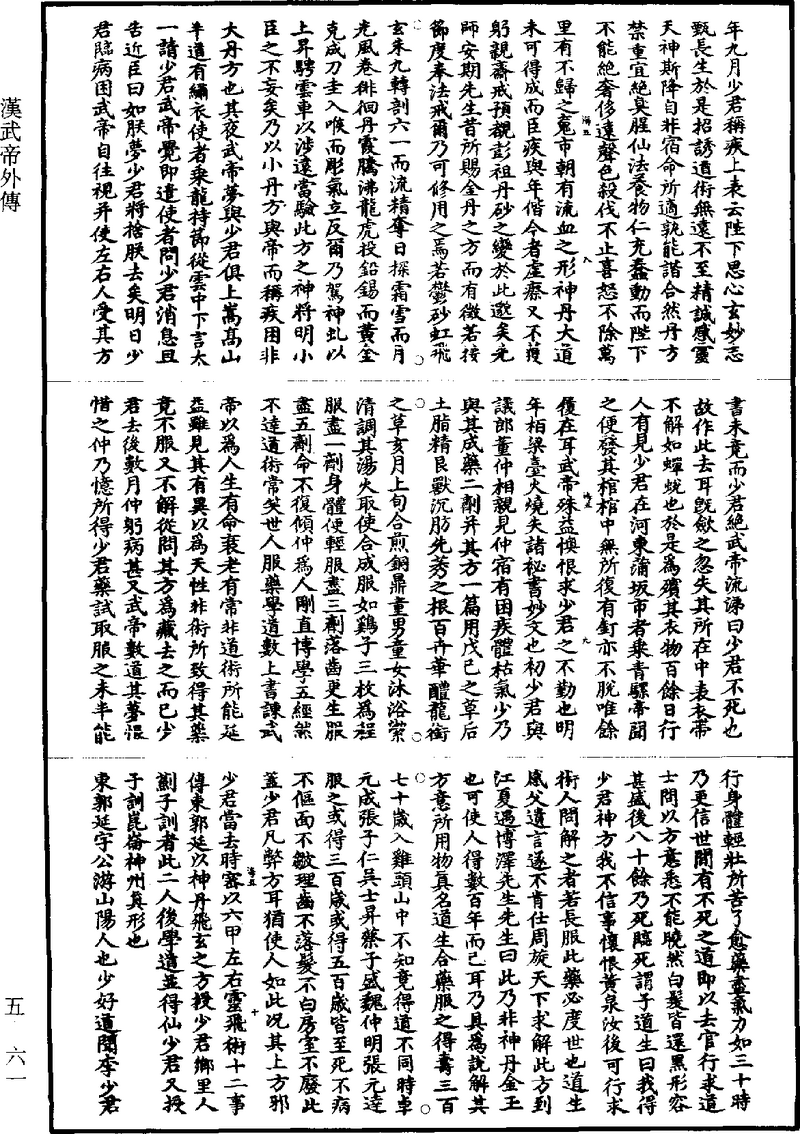 漢武帝外傳
五·六一
年九月少君稱疾上表云陛下思心玄妙志
甄長生於是招誘道術無遠不至精誠感靈
天神斯降自非宿命所適孰能諧合然丹方
禁重宜絕臭腥仙法養物仁充蠢動而陛下
不能絕奢侈遠聲色殺伐不止喜怒不除萬
里有不歸之魂市朝有流血之形神丹大道
未可得成而臣疾與年偕今者虛瘵又不獲
躬親齋戒預覩彭祖丹砂之變於此邈矣先
師安期先生昔所賜金丹之方而有徵若按
節度奉法戒爾乃可修用之焉若鬱砂虹飛
玄朱九轉剖六一而流精奪日探霜雪而月
光風卷徘徊丹霞騰沸龍虎投鉛錫而黃金
克成刀圭入喉而彫氣立反爾乃駕神虬以
上昇騁雲車以涉遠當驗此方之神將明小
臣之不妄矣乃以小丹方與帝而稱疾困非
大丹方也其夜武帝夢與少君俱上嵩高山
半道有繡衣使者乘龍持節從雲中下言太
一請少君武帝覺即遣使者問少君消息且
告近臣曰如朕夢少君將捨朕去矣明日少
君臨病困武帝自往視并使左右人受其方
書未竟而少君絕武帝流涕曰少君不死也
故作此去耳既斂之忽失其所在中表衣帶
不解如蟬蛻也於是為殯其衣物百餘日行
人有見少君在河東蒲坂市者乘青騾帝聞
之便發其棺棺中無所復有釘亦不脫唯餘
履在耳武帝殊益懊恨求少君之不勤也明
年柏梁臺火燒失諸祕書妙文也初少君與
議郎董仲相親見仲宿有困疾體枯氣少乃
與其成藥二劑并其方一篇用戊己之草后
土脂精艮獸沉肪先莠之根百卉華醴龍銜
之草亥月上旬合煎銅鼎童男童女沐浴潔
清調其湯火取使合成服如鷄子三枚為程
服盡一劑身體便輕服盡三劑落齒更生服
盡五劑命不復傾仲為人剛直博學五經然
不達道術常笑世人服藥學道數上書諫武
帝以為人生有命衰老有常非道術所能延
益雖見其有異以為天性非術所致得其藥
竟不服又不解從問其方為藏去之而已少
君去後數月仲躬病甚又武帝數道其夢恨
惜之仲乃憶所得少君藥試取服之未半能
行身體輕壯所苦了愈藥盡氣力如三十時
乃更信世間有不死之道即以去官行求道
士問以方意悉不能曉然白髮皆還黑形容
甚盛後八十餘乃死臨死謂子道生曰我得
少君神方我不信事懷恨黃泉汝後可行求
術人問解之者若長服此藥必度世也道生
感父遺言遂不肯仕周旋天下求解此方到
江夏遇博澤先生先生曰此乃非神丹金玉
也可使人得數百年而已耳乃具為說解其
方意所用物真名道生合藥服之得壽三百
七十歲入雞頭山中不知竟得道不同時卓
元成張子仁吳士昇蔡子盛魏仲明張元達
服之或得三百歲或得五百歲皆至死不病
不傴面不皺理齒不落髮不白房室不廢此
蓋少君凡弊方耳猶使人如此況其上方邪
少君當去時密以六甲左右靈飛術十二事
傳東郭延以神丹飛玄之方授少君鄉里人
薊子訓者此二人後學道並得仙少君又授
子訓崑崙神州真形也
東郭延字公游山陽人也少好道聞李少君